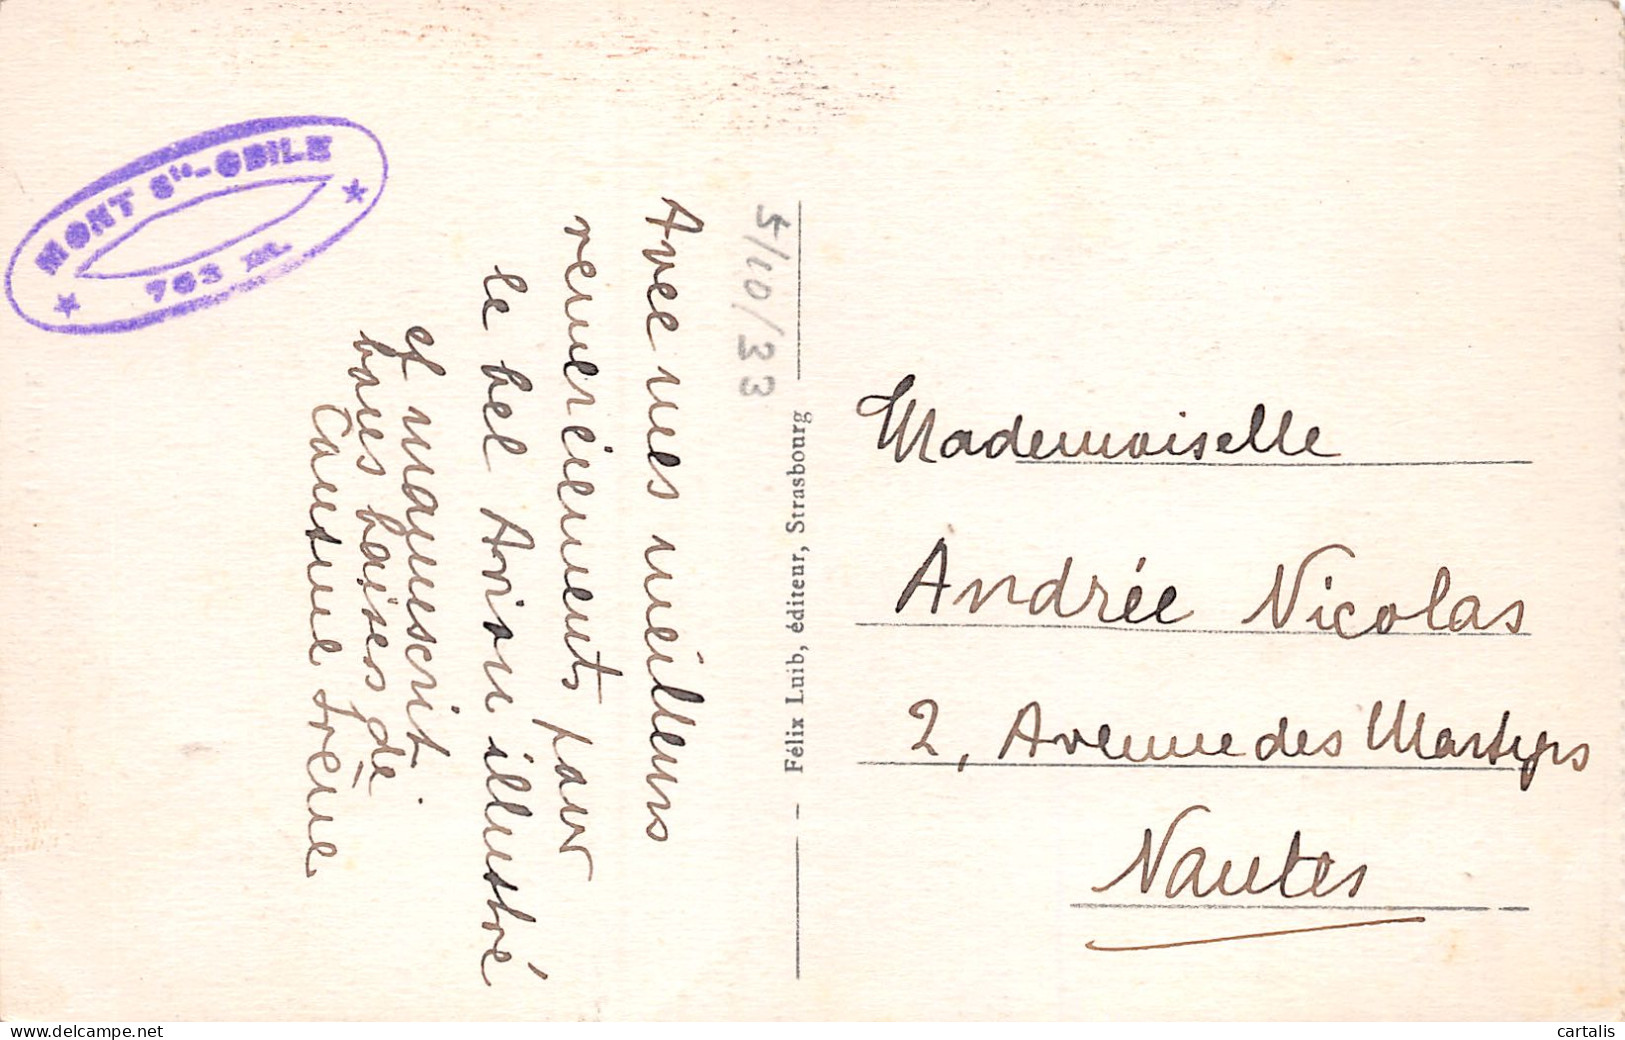 MONT Ste-ODILE
763 m.
Avec mes meilleurs
remerciements pour
le bel Avion illustré
et manuscrit.
bons baisers de
Cousine Irène
5/10/33
Félix Luib, éditeur, Strasbourg
Mademoiselle
Andrée Nicolas
2, Avenue des Martyrs
Nantes
cartalis